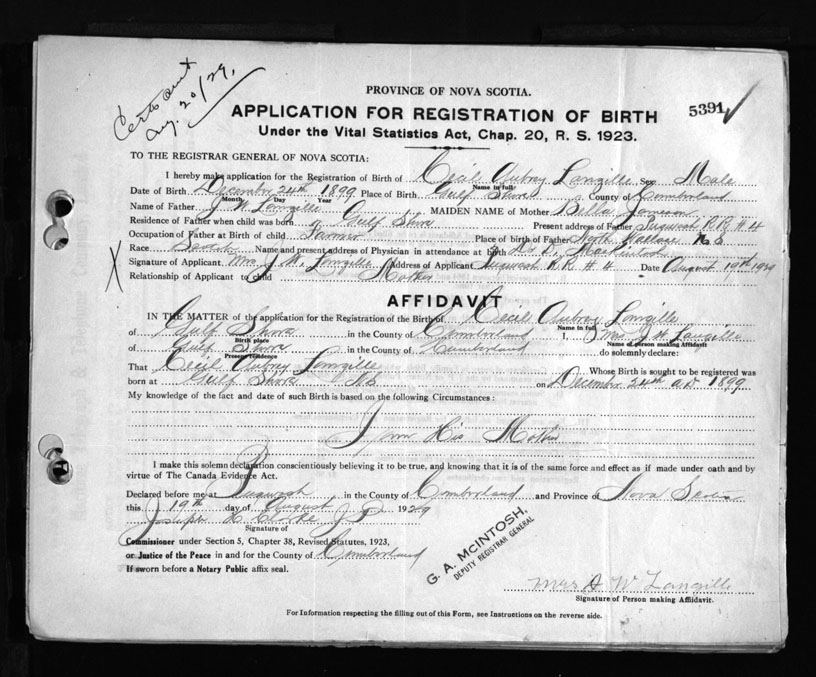 Cert sent
Aug. 20/29.
PROVINCE OF NOVA SCOTIA.
5391
APPLICATION FOR REGISTRATION OF BIRTH
Under the Vital Statistics Act, Chap. 20, R. S. 1923.
TO THE REGISTRAR GENERAL OF NOVA SCOTIA:
I hereby make application for the Registration of Birth of Cecil Aubrey Langille Sex Male
Name in full
Date of Birth December 24th 1899 Place of Birth Gulf Shore County of Cumberland
Month Day Year
Name of Father J W Langille MAIDEN NAME of Mother Bella Jamieson
Residence of Father when child was born Gulf Shore Present address of Father Pugwash R R # 4
Occupation of Father at Birth of child Farmer Place of birth of Father North Wallace N S
Race Scotch Name and present address of Physician in attendance at birth Dr Mackintosh
Signature of Applicant Mrs J. W. Langille Address of Applicant Pugwash R R # 4 Date August 19th 1929
Relationship of Applicant to child Mother
AFFIDAVIT
IN THE MATTER of the application for the Registration of the Birth of Cecil Aubrey Langille
Name in full
of Gulf Shore in the County of Cumberland I, Mrs J W Langille
Birth place Name of person making Affidavit
of Gulf Shore in the County of Cumberland do solemnly declare:
Present residence
That Cecil Aubrey Langille Whose Birth is sought to be registered was
born at Gulf Shore N S on December 24th A D 1899
My knowledge of the fact and date of such Birth is based on the following Circumstances :
I am His Mother
I make this solemn declaration conscientiously believing it to be true, and knowing that it is of the same force and effect as if made under oath and by
virtue of The Canada Evidence Act.
Declared before me at Pugwash in the County of Cumberland and Province of Nova Scotia
this 19th day of August 1929
Joseph H. Clarke J P
Signature of
Commissioner under Section 5, Chapter 38, Revised Statutes, 1923,
or Justice of the Peace in and for the County of Cumberland
If sworn before a Notary Public affix seal.
G. A. McINTOSH,
DEPUTY REGISTRAR GENERAL
Mrs J W Langille
Signature of Person making Affidavit.
For Information respecting the filling out of this Form, see Instructions on the reverse side.